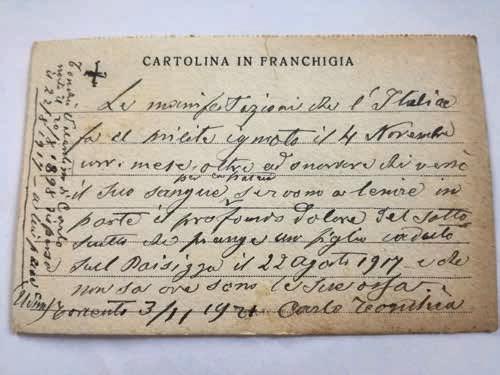 CARTOLINA IN FRANCHIGIA
Le manifestazioni che l'Italia
fa al milite ignoto il 4 Novembre
corr. mese, oltre ad onorare chi versò
per la patria
il suo sangue servono a lenire in
parte il profondo dolore del sotto
scritto che piange un figlio caduto
sul 22 agosto 1917 e che
non sa ove sono le sue ossa.
3/11 1921 Carlo
di Carlo
1898
22/8 1917